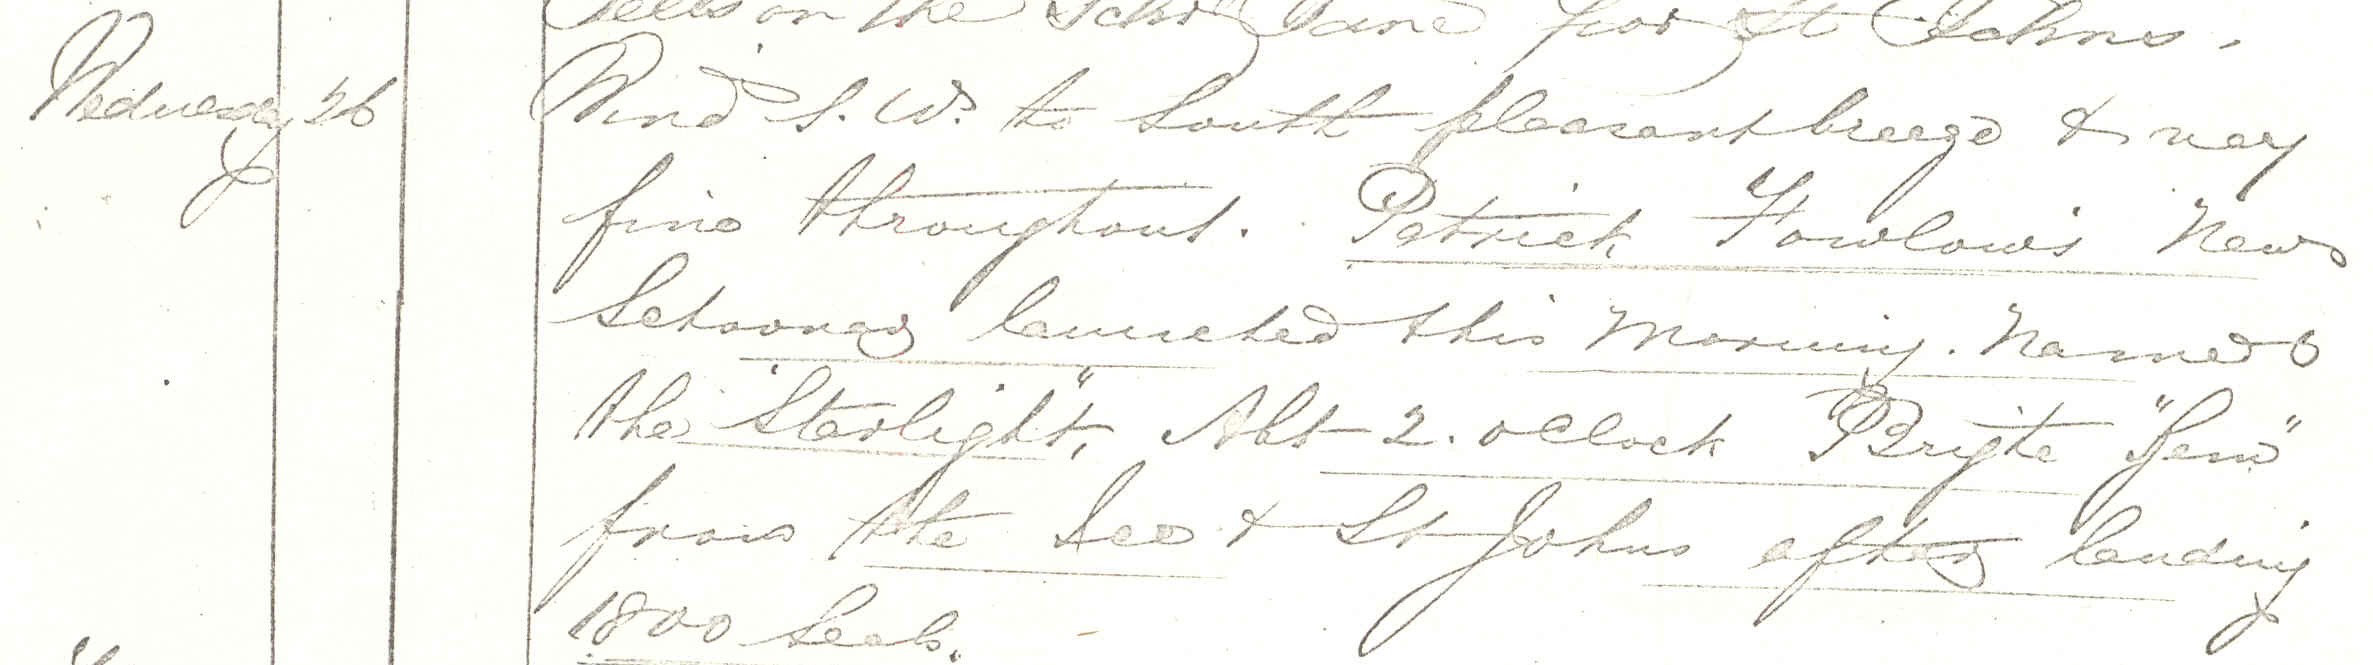 on the Schr Jane for St Johns.
Wednesday 26 Wind S. W. to South pleasant breeze & very
fine throughout. Patrick Fowlow's New
Schooner launched this Morning. Named
the "Starlight", Abt 2. oClock Brigte "Gem"
from the Ice & St Johns after landing
1800 Seals.